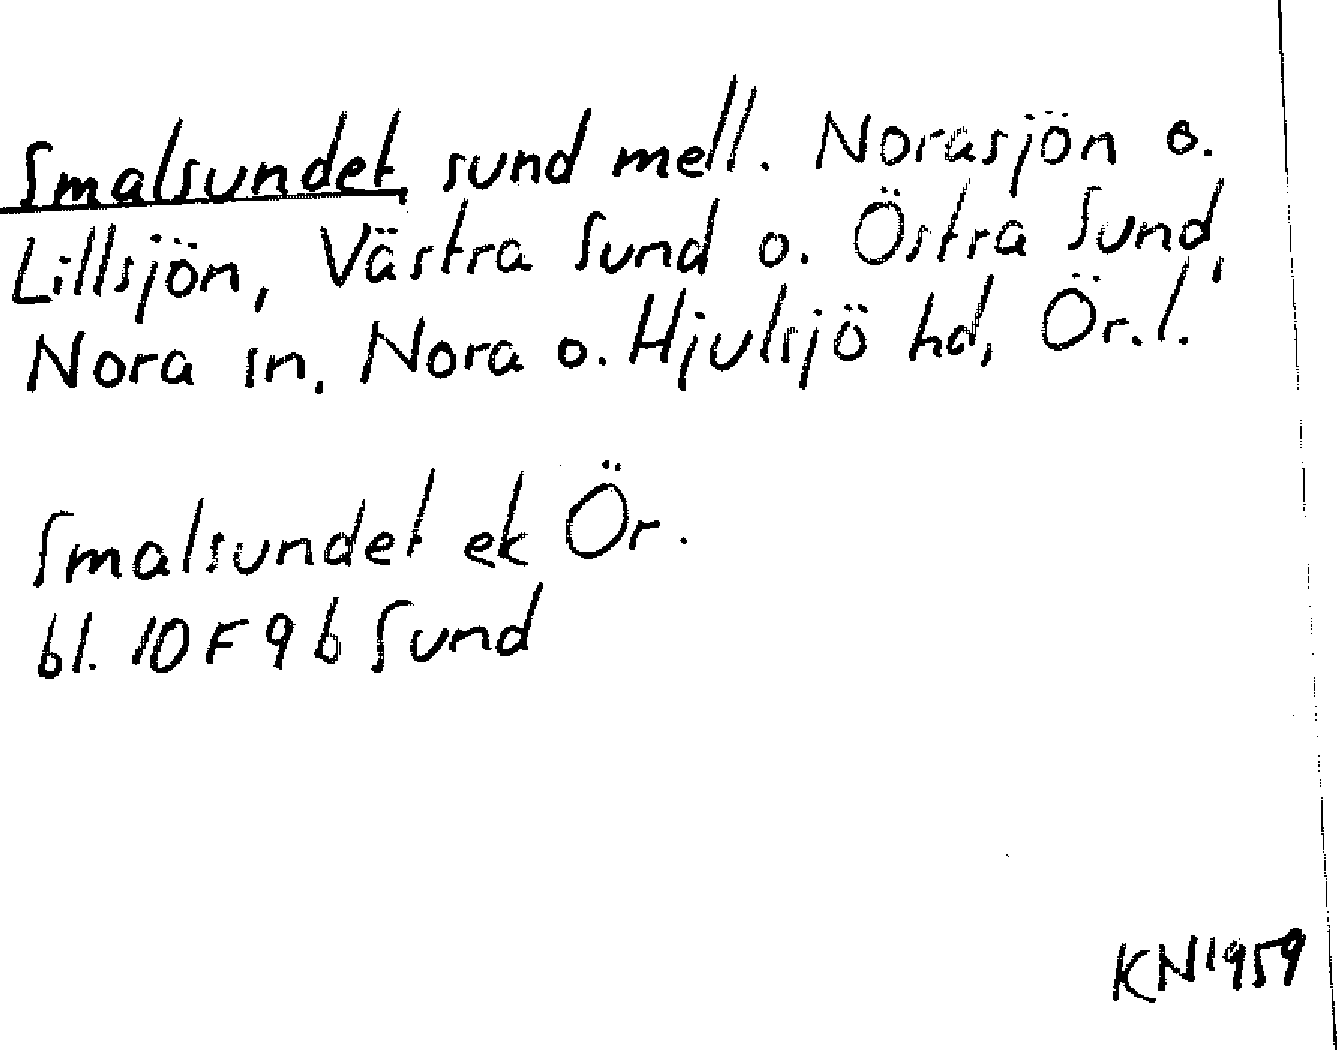 Smalsundet, sund mell. Norasjön o.
Lillsjön, Västra Sund o. Östra Sund,
Nora sn, Nora o. Hjulsjö hd, Ör. l.
Smalsundet ek Ör.
bl. 10 F 9 b Sund
KN 1959